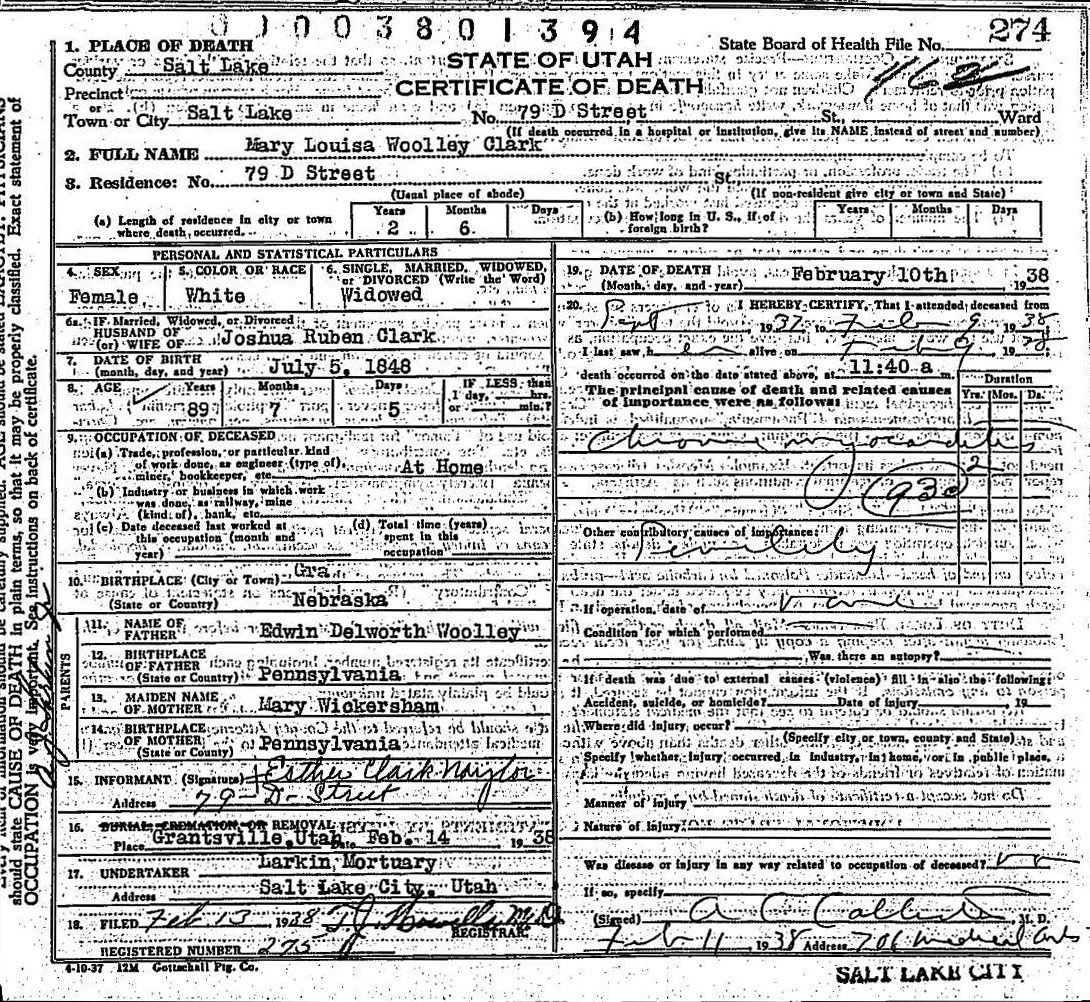 0 1 0 0 3 8 0 1 3 9 4
274
1. PLACE OF DEATH
State Board of Health File No.
County Salt Lake
STATE OF UTAH
Precinct
CERTIFICATE OF DEATH
or
Town or City Salt Lake No. 79 D Street St., Ward
(If death occurred in a hospital or institution, give its NAME instead of street and number)
2. FULL NAME Mary Louisa Woolley Clark
3. Residence: No. 79 D Street St
(Usual place of abode) (If non-resident give city or town and State)
(a) Length of residence in city or town where death occurred. Years 2 Months 6 Days
(b) How long in U. S., if of foreign birth? Years Months Days
PERSONAL AND STATISTICAL PARTICULARS
4. SEX Female
5. COLOR OR RACE White
6. SINGLE, MARRIED, WIDOWED, or DIVORCED (Write the Word) Widowed
6a. IF Married, Widowed, or Divorced
HUSBAND OF
(or) WIFE OF Joshua Ruben Clark
7. DATE OF BIRTH
(month, day, and year) July 5, 1848
8. AGE Years 89 Months 7 Days 5 IF LESS than 1 day, hrs. or min.?
9. OCCUPATION OF DECEASED
(a) Trade, profession, or particular kind of work done, as engineer (type of), miner, bookkeeper, etc. At Home
(b) Industry or business in which work was done, as railway, mine (kind of), bank, etc.
(c) Date deceased last worked at this occupation (month and year)
(d) Total time (years) spent in this occupation
10. BIRTHPLACE (City or Town) Gra
(State or Country) Nebraska
PARENTS
11. NAME OF FATHER Edwin Delworth Woolley
12. BIRTHPLACE OF FATHER
(State or Country) Pennsylvania
13. MAIDEN NAME OF MOTHER Mary Wickersham
14. BIRTHPLACE OF MOTHER
(State or Country) Pennsylvania
15. INFORMANT (Signature) Esther Clark Naylor
Address 79 - D - Street
16. BURIAL, CREMATION, OR REMOVAL
Place Grantsville, Utah Date Feb. 14 1938
17. UNDERTAKER Larkin Mortuary
Address Salt Lake City, Utah
18. FILED Feb 13 1938 T.J. Howells M.D.
REGISTRAR
REGISTERED NUMBER 275
4-10-37 12M Gottschall Ptg. Co.
19. DATE OF DEATH
(Month, day, and year) February 10th 1938
20. I HEREBY CERTIFY, That I attended deceased from
Sept 1937 to Feb 9 1938
I last saw her alive on Feb 9 1938
death occurred on the date stated above, at 11:40 a m.
The principal cause of death and related causes of importance were as follows:
Duration
Yrs. Mos. Ds.
Chronic myocarditis
2
93c
Other contributory causes of importance:
Senility
If operation, date of
Condition for which performed
Was there an autopsy?
If death was due to external causes (violence) fill in also the following:
Accident, suicide, or homicide? Date of injury 19
Where did injury occur?
(Specify city or town, county and State)
Specify whether injury occurred in industry, in home, or in public place.
Manner of injury
Nature of injury
Was disease or injury in any way related to occupation of deceased?
If so, specify
(Signed) A C Callister M. D.
Feb 11 1938 Address 706 Medical Arts
SALT LAKE CITY
should state CAUSE OF DEATH in plain terms, so that it may be properly classified. Exact statement of
OCCUPATION is very important. See instructions on back of certificate.